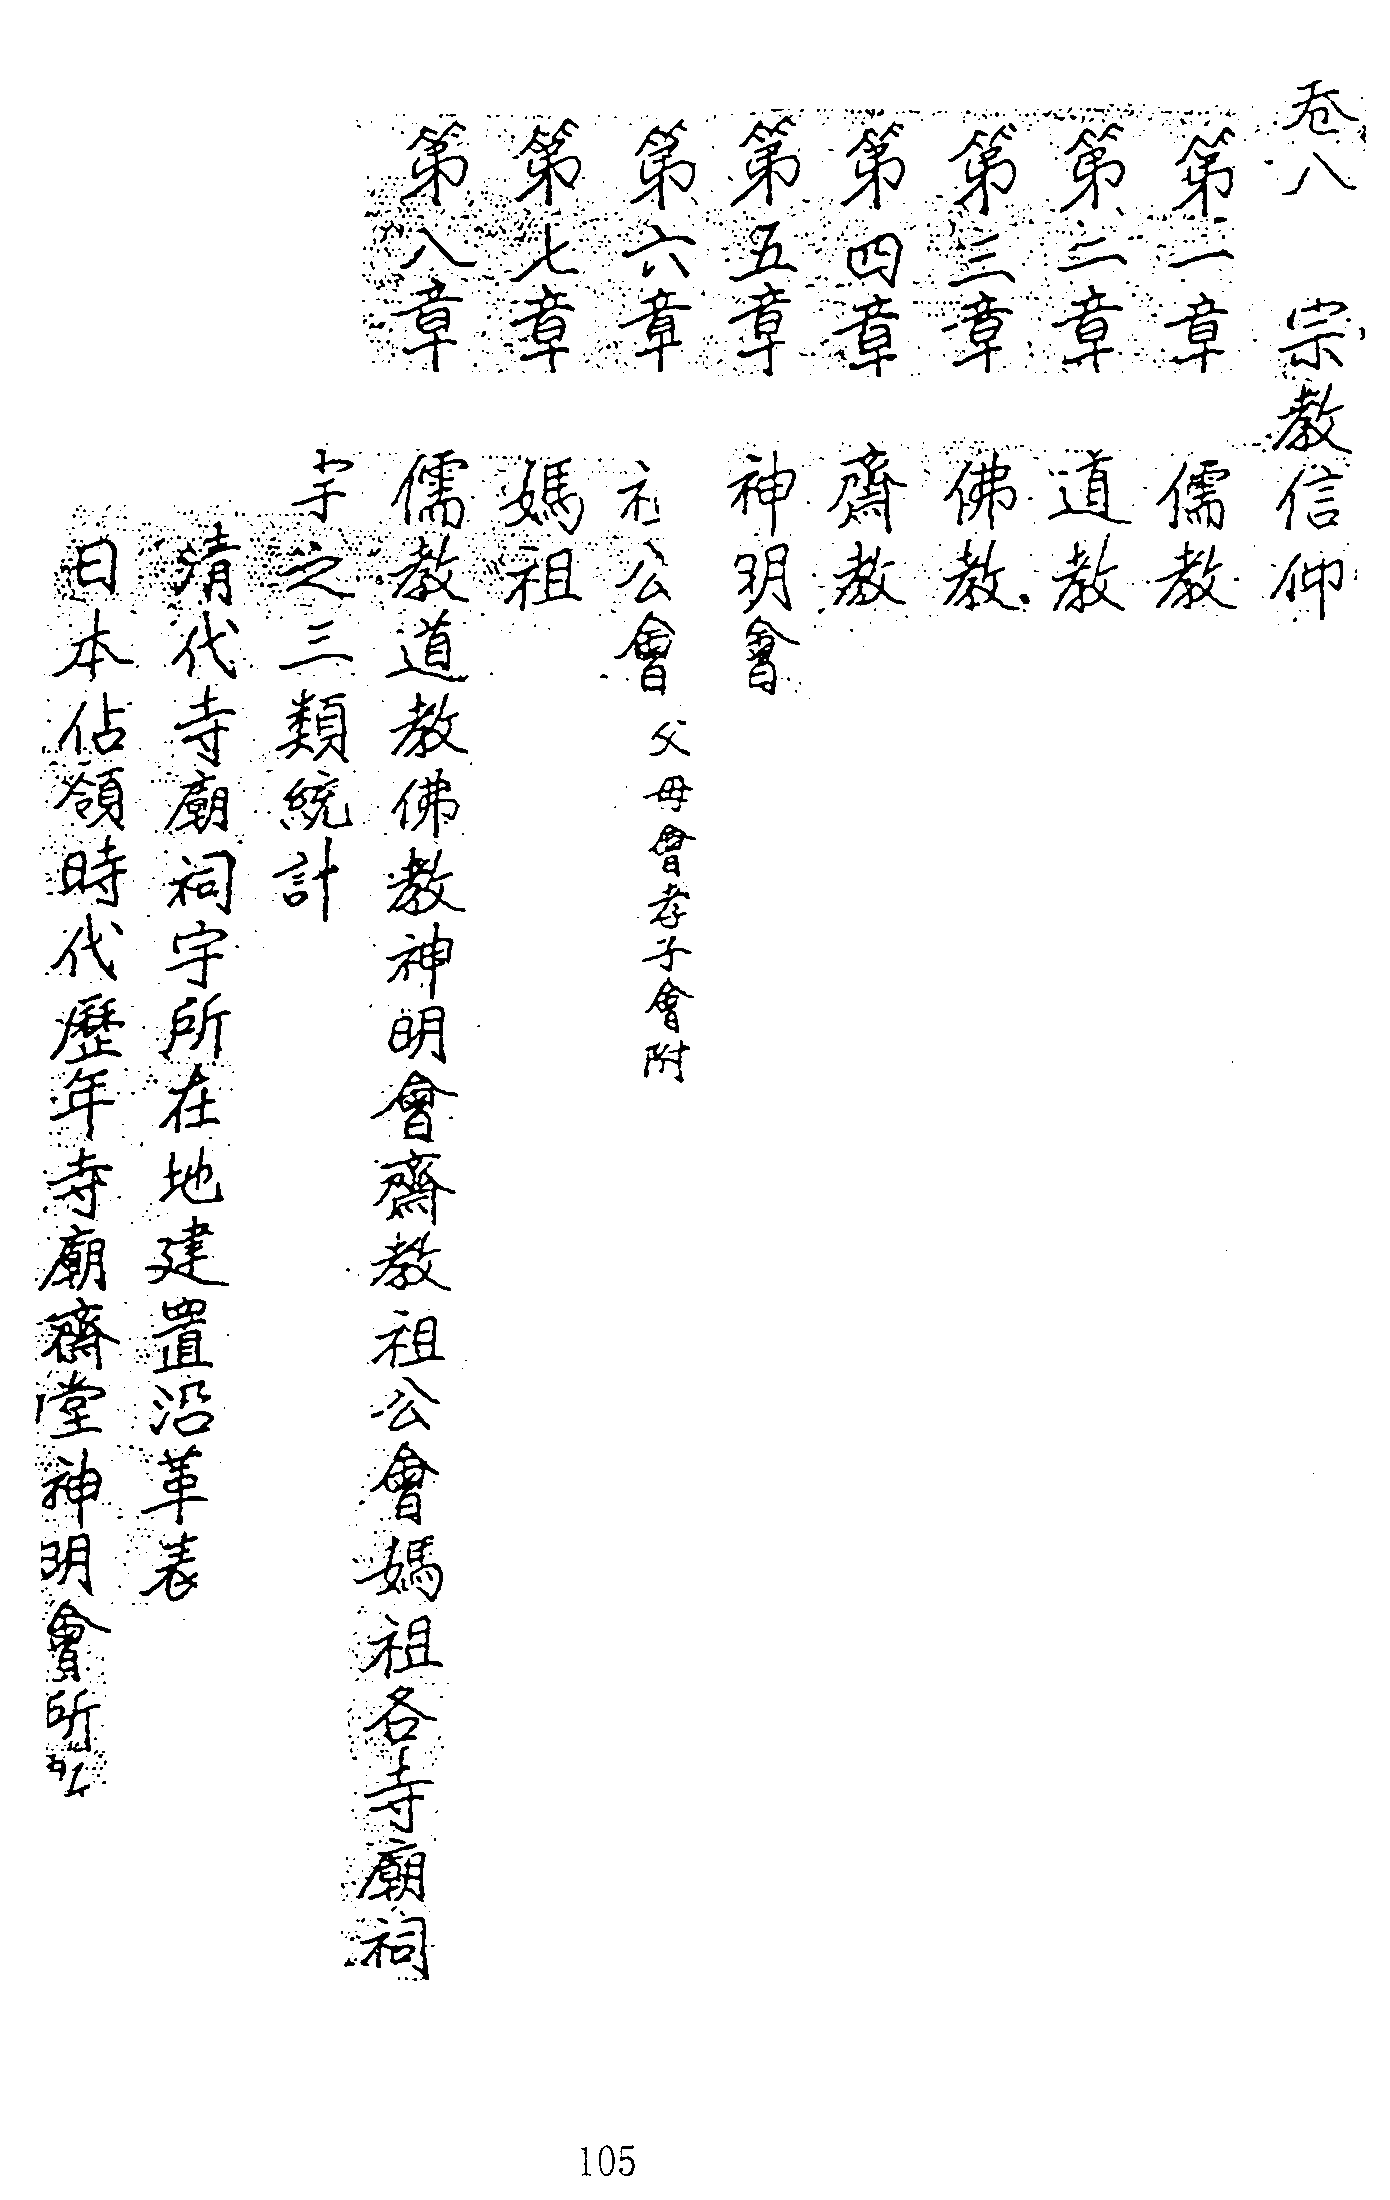 卷八　宗教信仰
第一章　儒教
第二章　道教
第三章　佛教
第四章　齋教
第五章　神明會
第六章　祖公會 父母會孝子會附
第七章　媽祖
第八章　儒教道教佛教神明會齋教祖公會媽祖各寺廟祠
宇之三類統計
清代寺廟祠宇所在地建置沿革表
日本佔領時代歷年寺廟齋堂神明會所
105